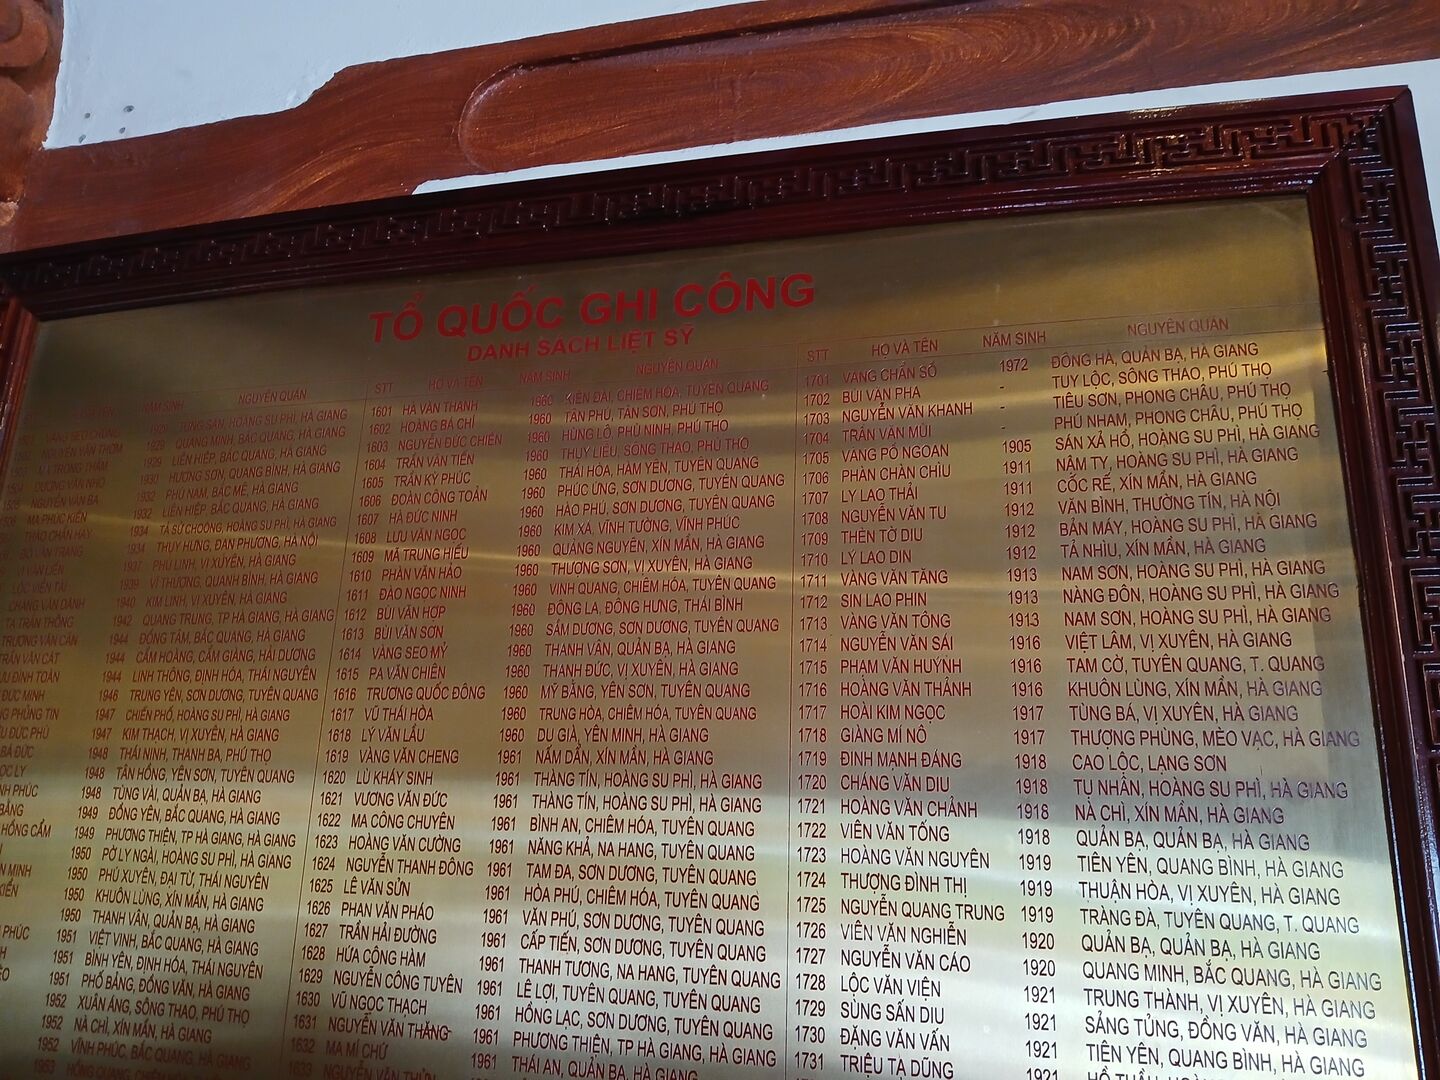 TỔ QUỐC GHI CÔNG
DANH SÁCH LIỆT SỸ
NĂM SINH NGUYÊN QUÁN
VÀNG SEO CHÚNG 1929 TÙNG SÁN, HOÀNG SU PHÌ, HÀ GIANG
NGUYỄN VĂN THƠM 1929 QUANG MINH, BẮC QUANG, HÀ GIANG
MA TRỌNG THẮM 1929 LIÊN HIỆP, BẮC QUANG, HÀ GIANG
1504 DƯƠNG VĂN NHO 1930 HƯƠNG SƠN, QUANG BÌNH, HÀ GIANG
1505 NGUYỄN VĂN BA 1932 PHÚ NAM, BẮC MÊ, HÀ GIANG
MA PHÚC KIÊN 1932 LIÊN HIỆP, BẮC QUANG, HÀ GIANG
THÀO CHẨN HAY 1934 TẢ SỬ CHOÓNG, HOÀNG SU PHÌ, HÀ GIANG
ĐỖ VĂN TRANG 1934 THỤY HƯNG, ĐAN PHƯỢNG, HÀ NỘI
VĂN LIÊN 1937 PHÚ LINH, VỊ XUYÊN, HÀ GIANG
LỘC VIỄN TÀI 1939 VĨ THƯỢNG, QUANH BÌNH, HÀ GIANG
CHANG VĂN DÀNH 1940 KIM LINH, VỊ XUYÊN, HÀ GIANG
TẠ TRẦN THÔNG 1942 QUANG TRUNG, TP HÀ GIANG, HÀ GIANG
TRƯƠNG VĂN CÁN 1944 ĐỒNG TÂM, BẮC QUANG, HÀ GIANG
TRẦN VĂN CÁT 1944 CẨM HOÀNG, CẨM GIÀNG, HẢI DƯƠNG
ĐÌNH TOÀN 1944 LINH THÔNG, ĐỊNH HÓA, THÁI NGUYÊN
ĐỨC MINH 1946 TRUNG YÊN, SƠN DƯƠNG, TUYÊN QUANG
PHỦNG TIN 1947 CHIẾN PHỐ, HOÀNG SU PHÌ, HÀ GIANG
ĐỨC PHÚ 1947 KIM THẠCH, VỊ XUYÊN, HÀ GIANG
BÁ ĐỨC 1948 THÁI NINH, THANH BA, PHÚ THỌ
LY 1948 TÂN HỒNG, YÊN SƠN, TUYÊN QUANG
PHÚC 1948 TÙNG VÀI, QUẢN BẠ, HÀ GIANG
BẰNG 1949 ĐỒNG YÊN, BẮC QUANG, HÀ GIANG
HỒNG CẨM 1949 PHƯƠNG THIỆN, TP HÀ GIANG, HÀ GIANG
1950 PỜ LY NGÀI, HOÀNG SU PHÌ, HÀ GIANG
MINH 1950 PHÚ XUYÊN, ĐẠI TỪ, THÁI NGUYÊN
1950 KHUÔN LÙNG, XÍN MẦN, HÀ GIANG
1950 THANH VÂN, QUẢN BẠ, HÀ GIANG
PHÚC 1951 VIỆT VINH, BẮC QUANG, HÀ GIANG
1951 BÌNH YÊN, ĐỊNH HÓA, THÁI NGUYÊN
1951 PHỐ BẢNG, ĐỒNG VĂN, HÀ GIANG
1952 XUÂN ÁNG, SÔNG THAO, PHÚ THỌ
1952 NÀ CHÌ, XÍN MẦN, HÀ GIANG
1952 VĨNH PHÚC, BẮC QUANG, HÀ GIANG
1953 HỒNG QUANG,
STT HỌ VÀ TÊN NĂM SINH NGUYÊN QUÁN
1601 HÀ VĂN THANH 1960 KIÊN ĐÀI, CHIÊM HÓA, TUYÊN QUANG
1602 HOÀNG BÁ CHỈ 1960 TÂN PHÚ, TÂN SƠN, PHÚ THỌ
1603 NGUYỄN ĐỨC CHIẾN 1960 HÙNG LÔ, PHÙ NINH, PHÚ THỌ
1604 TRẦN VĂN TIẾN 1960 THỤY LIỄU, SÔNG THAO, PHÚ THỌ
1605 TRẦN KỲ PHÚC 1960 THÁI HÒA, HÀM YÊN, TUYÊN QUANG
1606 ĐOÀN CÔNG TOẢN 1960 PHÚC ỨNG, SƠN DƯƠNG, TUYÊN QUANG
1607 HÀ ĐỨC NINH 1960 HÀO PHÚ, SƠN DƯƠNG, TUYÊN QUANG
1608 LƯU VĂN NGỌC 1960 KIM XÁ, VĨNH TƯỜNG, VĨNH PHÚC
1609 MÃ TRUNG HIẾU 1960 QUẢNG NGUYÊN, XÍN MẦN, HÀ GIANG
1610 PHÀN VĂN HẢO 1960 THƯỢNG SƠN, VỊ XUYÊN, HÀ GIANG
1611 ĐÀO NGỌC NINH 1960 VINH QUANG, CHIÊM HÓA, TUYÊN QUANG
1612 BÙI VĂN HỢP 1960 ĐÔNG LA, ĐÔNG HƯNG, THÁI BÌNH
1613 BÙI VĂN SƠN 1960 SẦM DƯƠNG, SƠN DƯƠNG, TUYÊN QUANG
1614 VÀNG SEO MỶ 1960 THANH VÂN, QUẢN BẠ, HÀ GIANG
1615 PA VĂN CHIÊN 1960 THANH ĐỨC, VỊ XUYÊN, HÀ GIANG
1616 TRƯƠNG QUỐC ĐÔNG 1960 MỸ BẰNG, YÊN SƠN, TUYÊN QUANG
1617 VŨ THÁI HÒA 1960 TRUNG HÒA, CHIÊM HÓA, TUYÊN QUANG
1618 LÝ VĂN LẦU 1960 DU GIÀ, YÊN MINH, HÀ GIANG
1619 VÀNG VĂN CHENG 1961 NẤM DẨN, XÍN MẦN, HÀ GIANG
1620 LÙ KHÁY SINH 1961 THÀNG TÍN, HOÀNG SU PHÌ, HÀ GIANG
1621 VƯƠNG VĂN ĐỨC 1961 THÀNG TÍN, HOÀNG SU PHÌ, HÀ GIANG
1622 MA CÔNG CHUYÊN 1961 BÌNH AN, CHIÊM HÓA, TUYÊN QUANG
1623 HOÀNG VĂN CƯỜNG 1961 NĂNG KHẢ, NA HANG, TUYÊN QUANG
1624 NGUYỄN THANH ĐÔNG 1961 TAM ĐA, SƠN DƯƠNG, TUYÊN QUANG
1625 LÊ VĂN SỬN 1961 HÒA PHÚ, CHIÊM HÓA, TUYÊN QUANG
1626 PHAN VĂN PHÁO 1961 VĂN PHÚ, SƠN DƯƠNG, TUYÊN QUANG
1627 TRẦN HẢI ĐƯỜNG 1961 CẤP TIẾN, SƠN DƯƠNG, TUYÊN QUANG
1628 HỨA CÔNG HÀM 1961 THANH TƯƠNG, NA HANG, TUYÊN QUANG
1629 NGUYỄN CÔNG TUYÊN 1961 LÊ LỢI, TUYÊN QUANG, TUYÊN QUANG
1630 VŨ NGỌC THẠCH 1961 HỒNG LẠC, SƠN DƯƠNG, TUYÊN QUANG
1631 NGUYỄN VĂN THẮNG 1961 PHƯƠNG THIỆN, TP HÀ GIANG, HÀ GIANG
1632 MA MÍ CHỨ 1961 THÁI AN, QUẢN BẠ, HÀ GIANG
1633 NGUYỄN VĂN
STT HỌ VÀ TÊN NĂM SINH NGUYÊN QUÁN
1701 VANG CHẤN SỐ 1972 ĐÔNG HÀ, QUẢN BẠ, HÀ GIANG
1702 BÙI VĂN PHA - TUY LỘC, SÔNG THAO, PHÚ THỌ
1703 NGUYỄN VĂN KHANH - TIÊU SƠN, PHONG CHÂU, PHÚ THỌ
1704 TRẦN VĂN MÙI - PHÚ NHAM, PHONG CHÂU, PHÚ THỌ
1705 VÀNG PỐ NGOAN 1905 SÁN XẢ HỒ, HOÀNG SU PHÌ, HÀ GIANG
1706 PHÀN CHÀN CHÌU 1911 NẬM TY, HOÀNG SU PHÌ, HÀ GIANG
1707 LY LAO THẢI 1911 CỐC RẾ, XÍN MẦN, HÀ GIANG
1708 NGUYỄN VĂN TU 1912 VĂN BÌNH, THƯỜNG TÍN, HÀ NỘI
1709 THÈN TỜ DIU 1912 BẢN MÁY, HOÀNG SU PHÌ, HÀ GIANG
1710 LÝ LAO DIN 1912 TẢ NHÌU, XÍN MẦN, HÀ GIANG
1711 VÀNG VĂN TĂNG 1913 NAM SƠN, HOÀNG SU PHÌ, HÀ GIANG
1712 SIN LAO PHIN 1913 NÀNG ĐÔN, HOÀNG SU PHÌ, HÀ GIANG
1713 VÀNG VĂN TÔNG 1913 NAM SƠN, HOÀNG SU PHÌ, HÀ GIANG
1714 NGUYỄN VĂN SÁI 1916 VIỆT LÂM, VỊ XUYÊN, HÀ GIANG
1715 PHẠM VĂN HUỲNH 1916 TAM CỜ, TUYÊN QUANG, T. QUANG
1716 HOÀNG VĂN THẢNH 1916 KHUÔN LÙNG, XÍN MẦN, HÀ GIANG
1717 HOÀI KIM NGỌC 1917 TÙNG BÁ, VỊ XUYÊN, HÀ GIANG
1718 GIÀNG MÍ NÔ 1917 THƯỢNG PHÙNG, MÈO VẠC, HÀ GIANG
1719 ĐINH MẠNH ĐÁNG 1918 CAO LỘC, LẠNG SƠN
1720 CHÁNG VĂN DIU 1918 TỤ NHÂN, HOÀNG SU PHÌ, HÀ GIANG
1721 HOÀNG VĂN CHẢNH 1918 NÀ CHÌ, XÍN MẦN, HÀ GIANG
1722 VIÊN VĂN TỐNG 1918 QUẢN BẠ, QUẢN BẠ, HÀ GIANG
1723 HOÀNG VĂN NGUYÊN 1919 TIÊN YÊN, QUANG BÌNH, HÀ GIANG
1724 THƯỢNG ĐÌNH THỊ 1919 THUẬN HÒA, VỊ XUYÊN, HÀ GIANG
1725 NGUYỄN QUANG TRUNG 1919 TRÀNG ĐÀ, TUYÊN QUANG, T. QUANG
1726 VIÊN VĂN NGHIỄN 1920 QUẢN BẠ, QUẢN BẠ, HÀ GIANG
1727 NGUYỄN VĂN CÁO 1920 QUANG MINH, BẮC QUANG, HÀ GIANG
1728 LỘC VĂN VIỆN 1921 TRUNG THÀNH, VỊ XUYÊN, HÀ GIANG
1729 SÙNG SẤN DIU 1921 SẢNG TỦNG, ĐỒNG VĂN, HÀ GIANG
1730 ĐẶNG VĂN VẤN 1921 TIÊN YÊN, QUANG BÌNH, HÀ GIANG
1731 TRIỆU TÀ DŨNG 1921